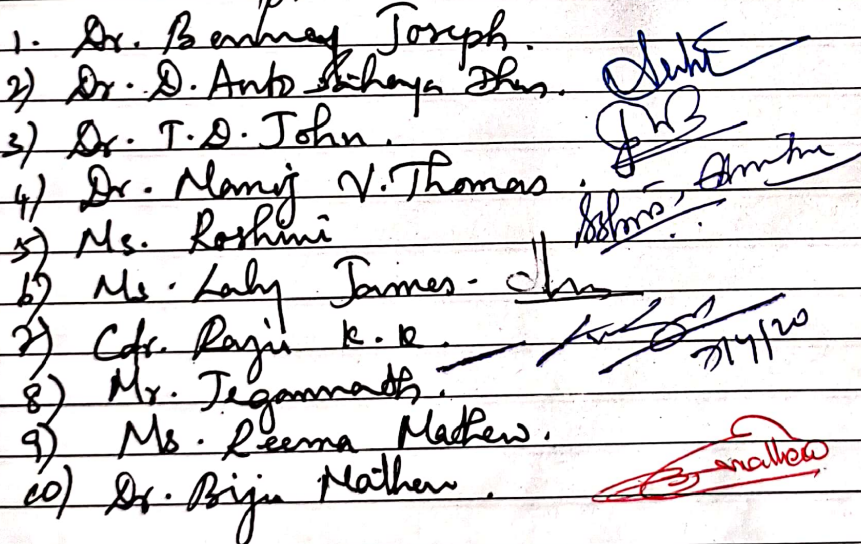 1. Dr. Benney Joseph.
2) Dr. D. Anto Sahaya Dhas.
3) Dr. T.D. John.
4) Dr. Manoj V. Thomas.
5) Ms. Roshini
6) Ms. Laly James-
7) Cdr. Raju K.K.
7/4/20
8) Mr. Jegannath.
9) Ms. Reema Mathew.
10) Dr. Biju Mathew. mathew